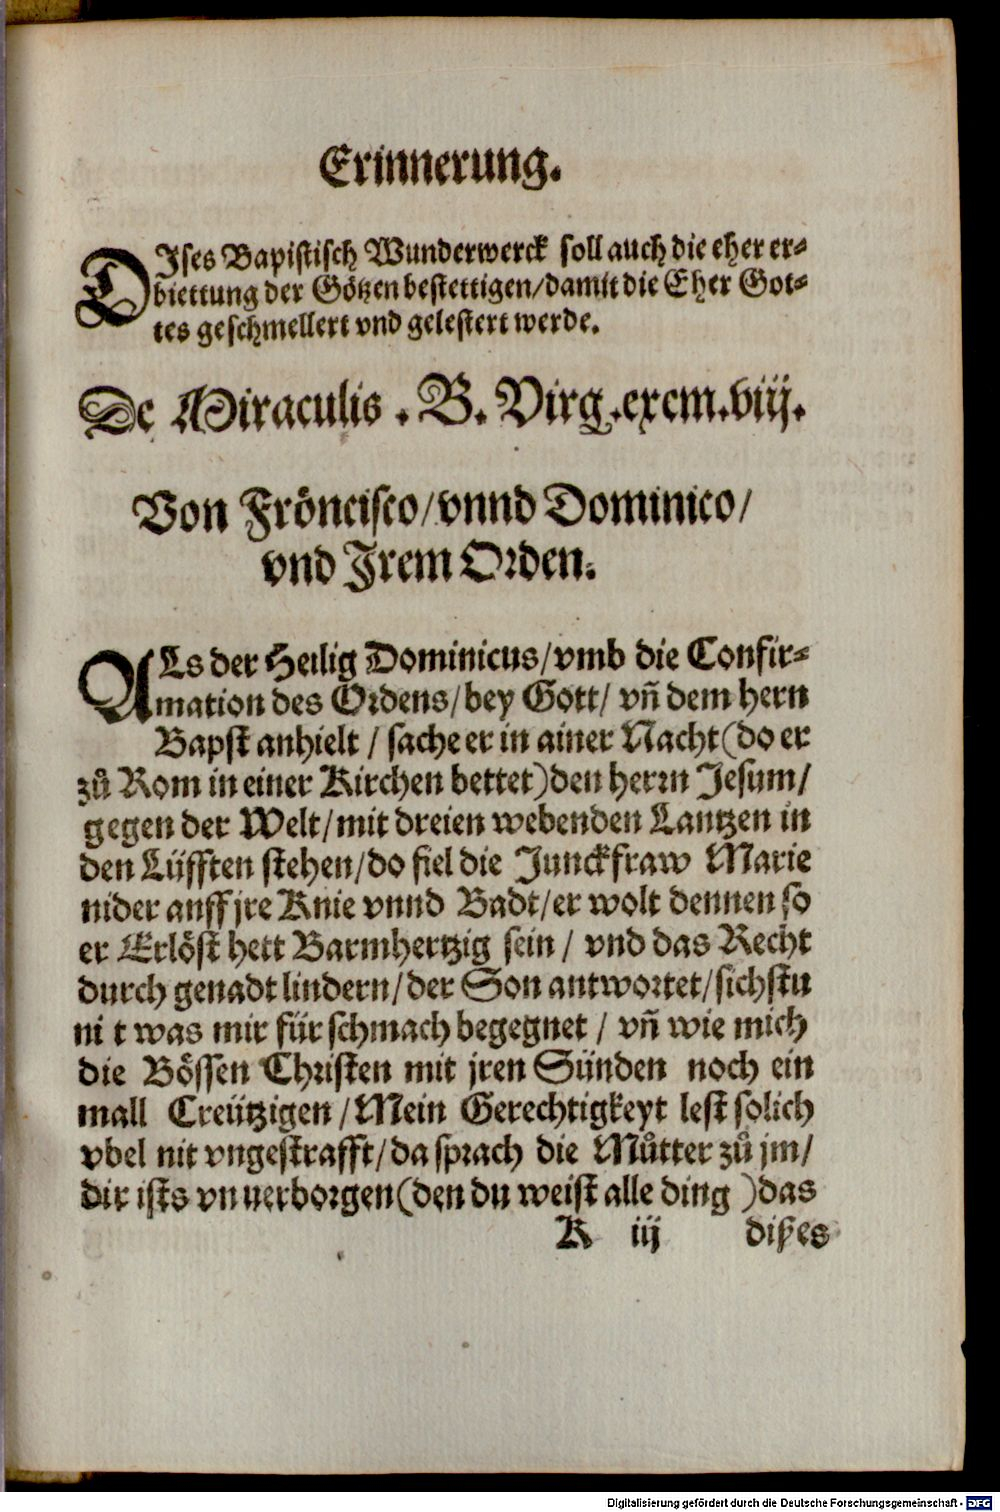 Erinnerung.
DIses Bapistisch Wunderwerck soll auch die eher er⸗
biettung der Götzen bestettigen/damit die Eher Got⸗
tes geschmellert vnd gelestert werde.
De Miraculis . B. Virg.exem.viij.
Von Fröncisco/vnnd Dominico/
vnd Irem Orden.
ALs der Heilig Dominicus/vmb die Confir⸗
mation des Ordens/bey Gott/ vñ dem hern
Bapst anhielt / sache er in ainer Nacht(do er
zů Rom in einer Kirchen bettet)den herrn Jesum/
gegen der Welt/mit dreien webenden Lantzen in
den Lüfften stehen/do fiel die Junckfraw Marie
nider auff jre Knie vnnd Badt/er wolt dennen so
er Erlöst hett Barmhertzig sein / vnd das Recht
durch genadt lindern/der Son antwortet/sichstu
ni t was mir für schmach begegnet / vñ wie mich
die Bössen Christen mit jren Sünden noch ein
mall Creützigen /Mein Gerechtigkeyt lest solich
vbel nit vngestrafft/da sprach die Můtter zů jm/
dir ists vnuerborgen(den du weist alle ding )das
K iij dißes
Digitalisierung gefördert durch die Deutsche Forschungsgemeinschaft - DFG